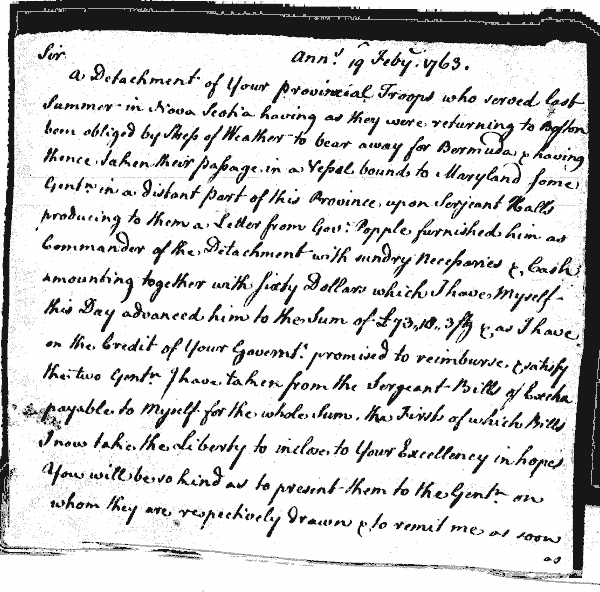 Sir
Ann.s 19 Feby. 1763.
a Detachment of Your provincial Troops who served last
Summer in Nova Scotia having as they were returning to Boston
been obliged by Stress of Weather to bear away for Bermuda & having
thence taken their passage in a Vessel bound to Maryland some
Gentn in a distant part of this Province upon Serjeant Halls
producing to them a Letter from Govr. Popple furnished him as
Commander of the Detachment with sundry Necessaries & Cash
amounting together with sixty Dollars which I have Myself
this Day advanced him to the Sum of £73.18.3 & as I have
on the Credit of Your Governt. promised to reimburse & satisfy
the two Gentn I have taken from the Sergeant Bills of Excha
payable to Myself for the whole Sum, the Firsts of which Bills
I now take the Liberty to inclose to Your Excellency in hopes
You will be so kind as to present them to the Gentn on
whom they are respectively drawn & to remit me as soon
as